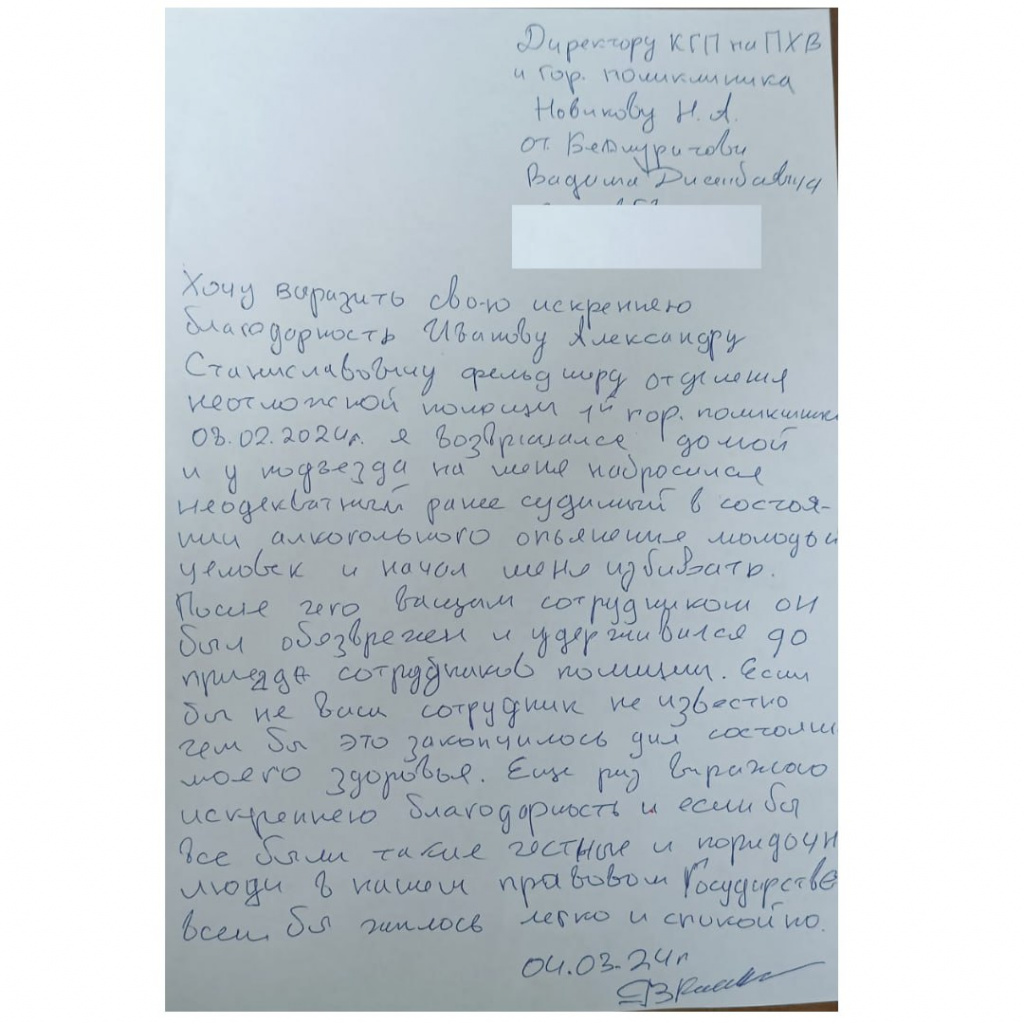 Директору КГП на ПХВ
гор. поликлиника
Новикову Н. А.
от
Вадима
Хочу выразить свою искреннею
благодарность Иванову Александру
Станиславовичу фельдшеру отделения
неотложной помощи 1й гор. поликлиник
08.02.2024г. я возвращался домой
и у подъезда на меня набросился
неодекватный ранее судимый в состоя-
нии алкогольного опьянения молодый
человек и начал меня избивать.
После чего вашым сотрудником он
был обезврежен и удерживался до
приезда сотрудников полиции. Если
бы не ваш сотрудник не известно
чем бы это закончилось для состояни
моего здоровья. Еще раз выражаю
искреннею благодарность и если бы
все были такие честные и порядочн
люди в нашем правовом Государстве
всем бы жилось легко и спокойно.
04.03.24г